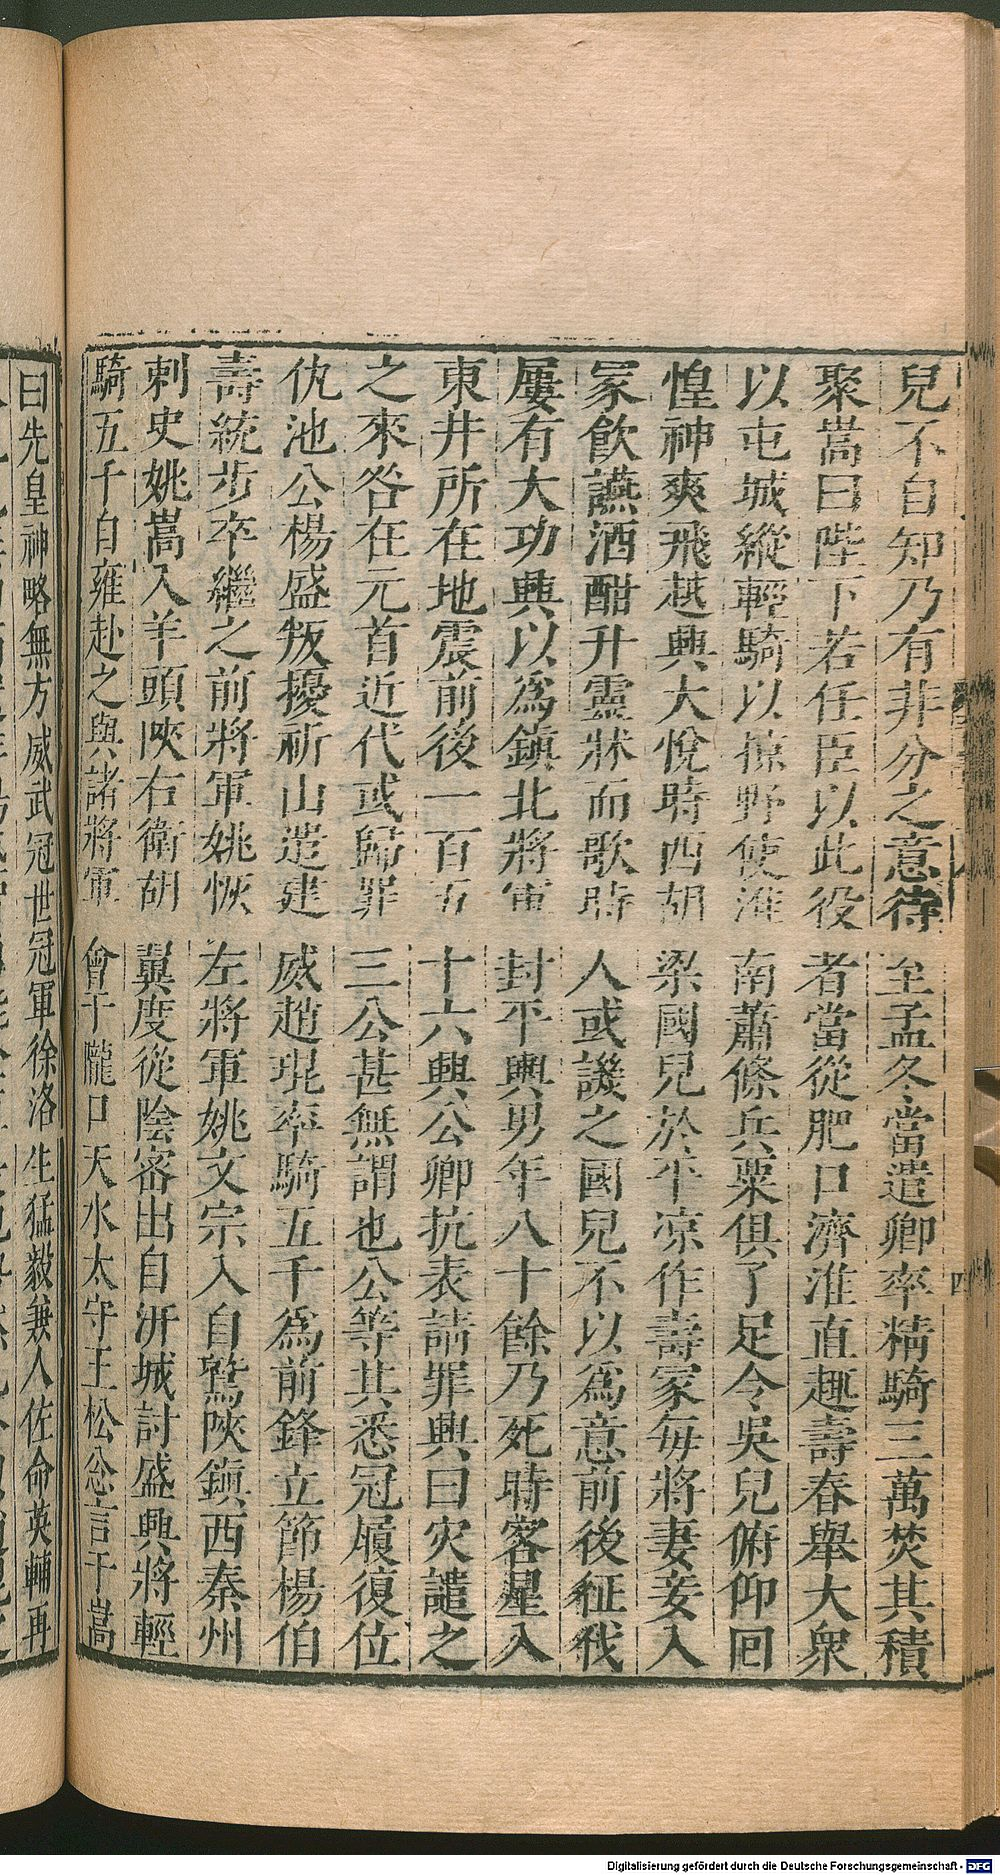 兒不自知乃有非分之意待至孟冬當遣卿率精騎三萬焚其積
聚嵩曰陛下若任臣以此役者當從肥口濟淮直趣壽春舉大衆
以屯城縱輕騎以掠野使淮南蕭條兵粟俱了足令吳兒俯仰回
惶神爽飛越興大悅時西胡梁國兒於平凉作壽冢每將妻妾入
冢飲讌酒酣升靈牀而歌時人或譏之國兒不以爲意前後征伐
屢有大功興以爲鎮北將軍封平輿男年八十餘乃死時客星入
東井所在地震前後一百五十六興公卿抗表請罪興曰灾譴之
之來咎在元首近代或歸罪三公甚無謂也公等其悉冠履復位
仇池公楊盛叛擾祈山遣建威趙琨率騎五千爲前鋒立節楊伯
壽統步卒繼之前將軍姚恢左將軍姚文宗入自鷲陝鎮西秦州
刺史姚嵩入羊頭陝右衛胡翼度從陰密出自汧城討盛興將輕
騎五千自雍赴之與諸將軍會于隴口天水太守王松忩言于嵩
曰先皇神略無方威武冠世冠軍徐洛生猛毅兼人佐命英輔再
四
Digitalisierung gefördert durch die Deutsche Forschungsgemeinschaft - DFG